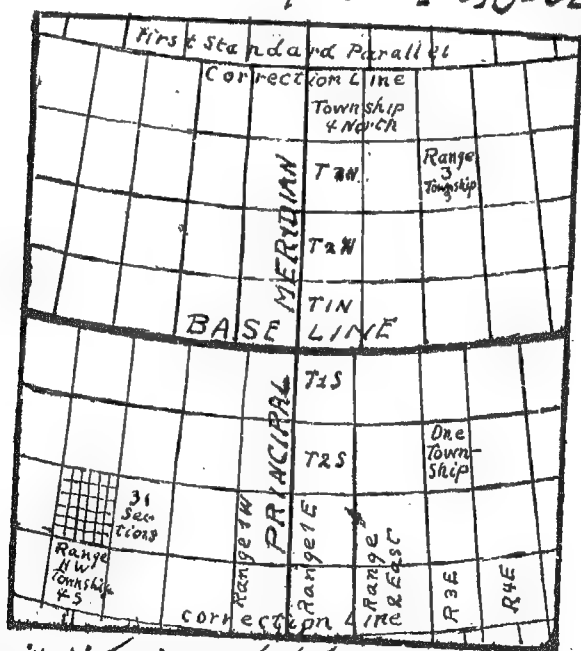 First Standard Parallel
Correction Line
Township
4 North
T3N
Range
3
Township
3
T2N
T1N
PRINCIPAL MERIDIAN
BASE LINE
T1S
T2S
One
Town-
Ship
Sec
tions
Range
Township
4 S
Range 1W
Range 1E
Range
2 East
R3E
R4E
Correction Line